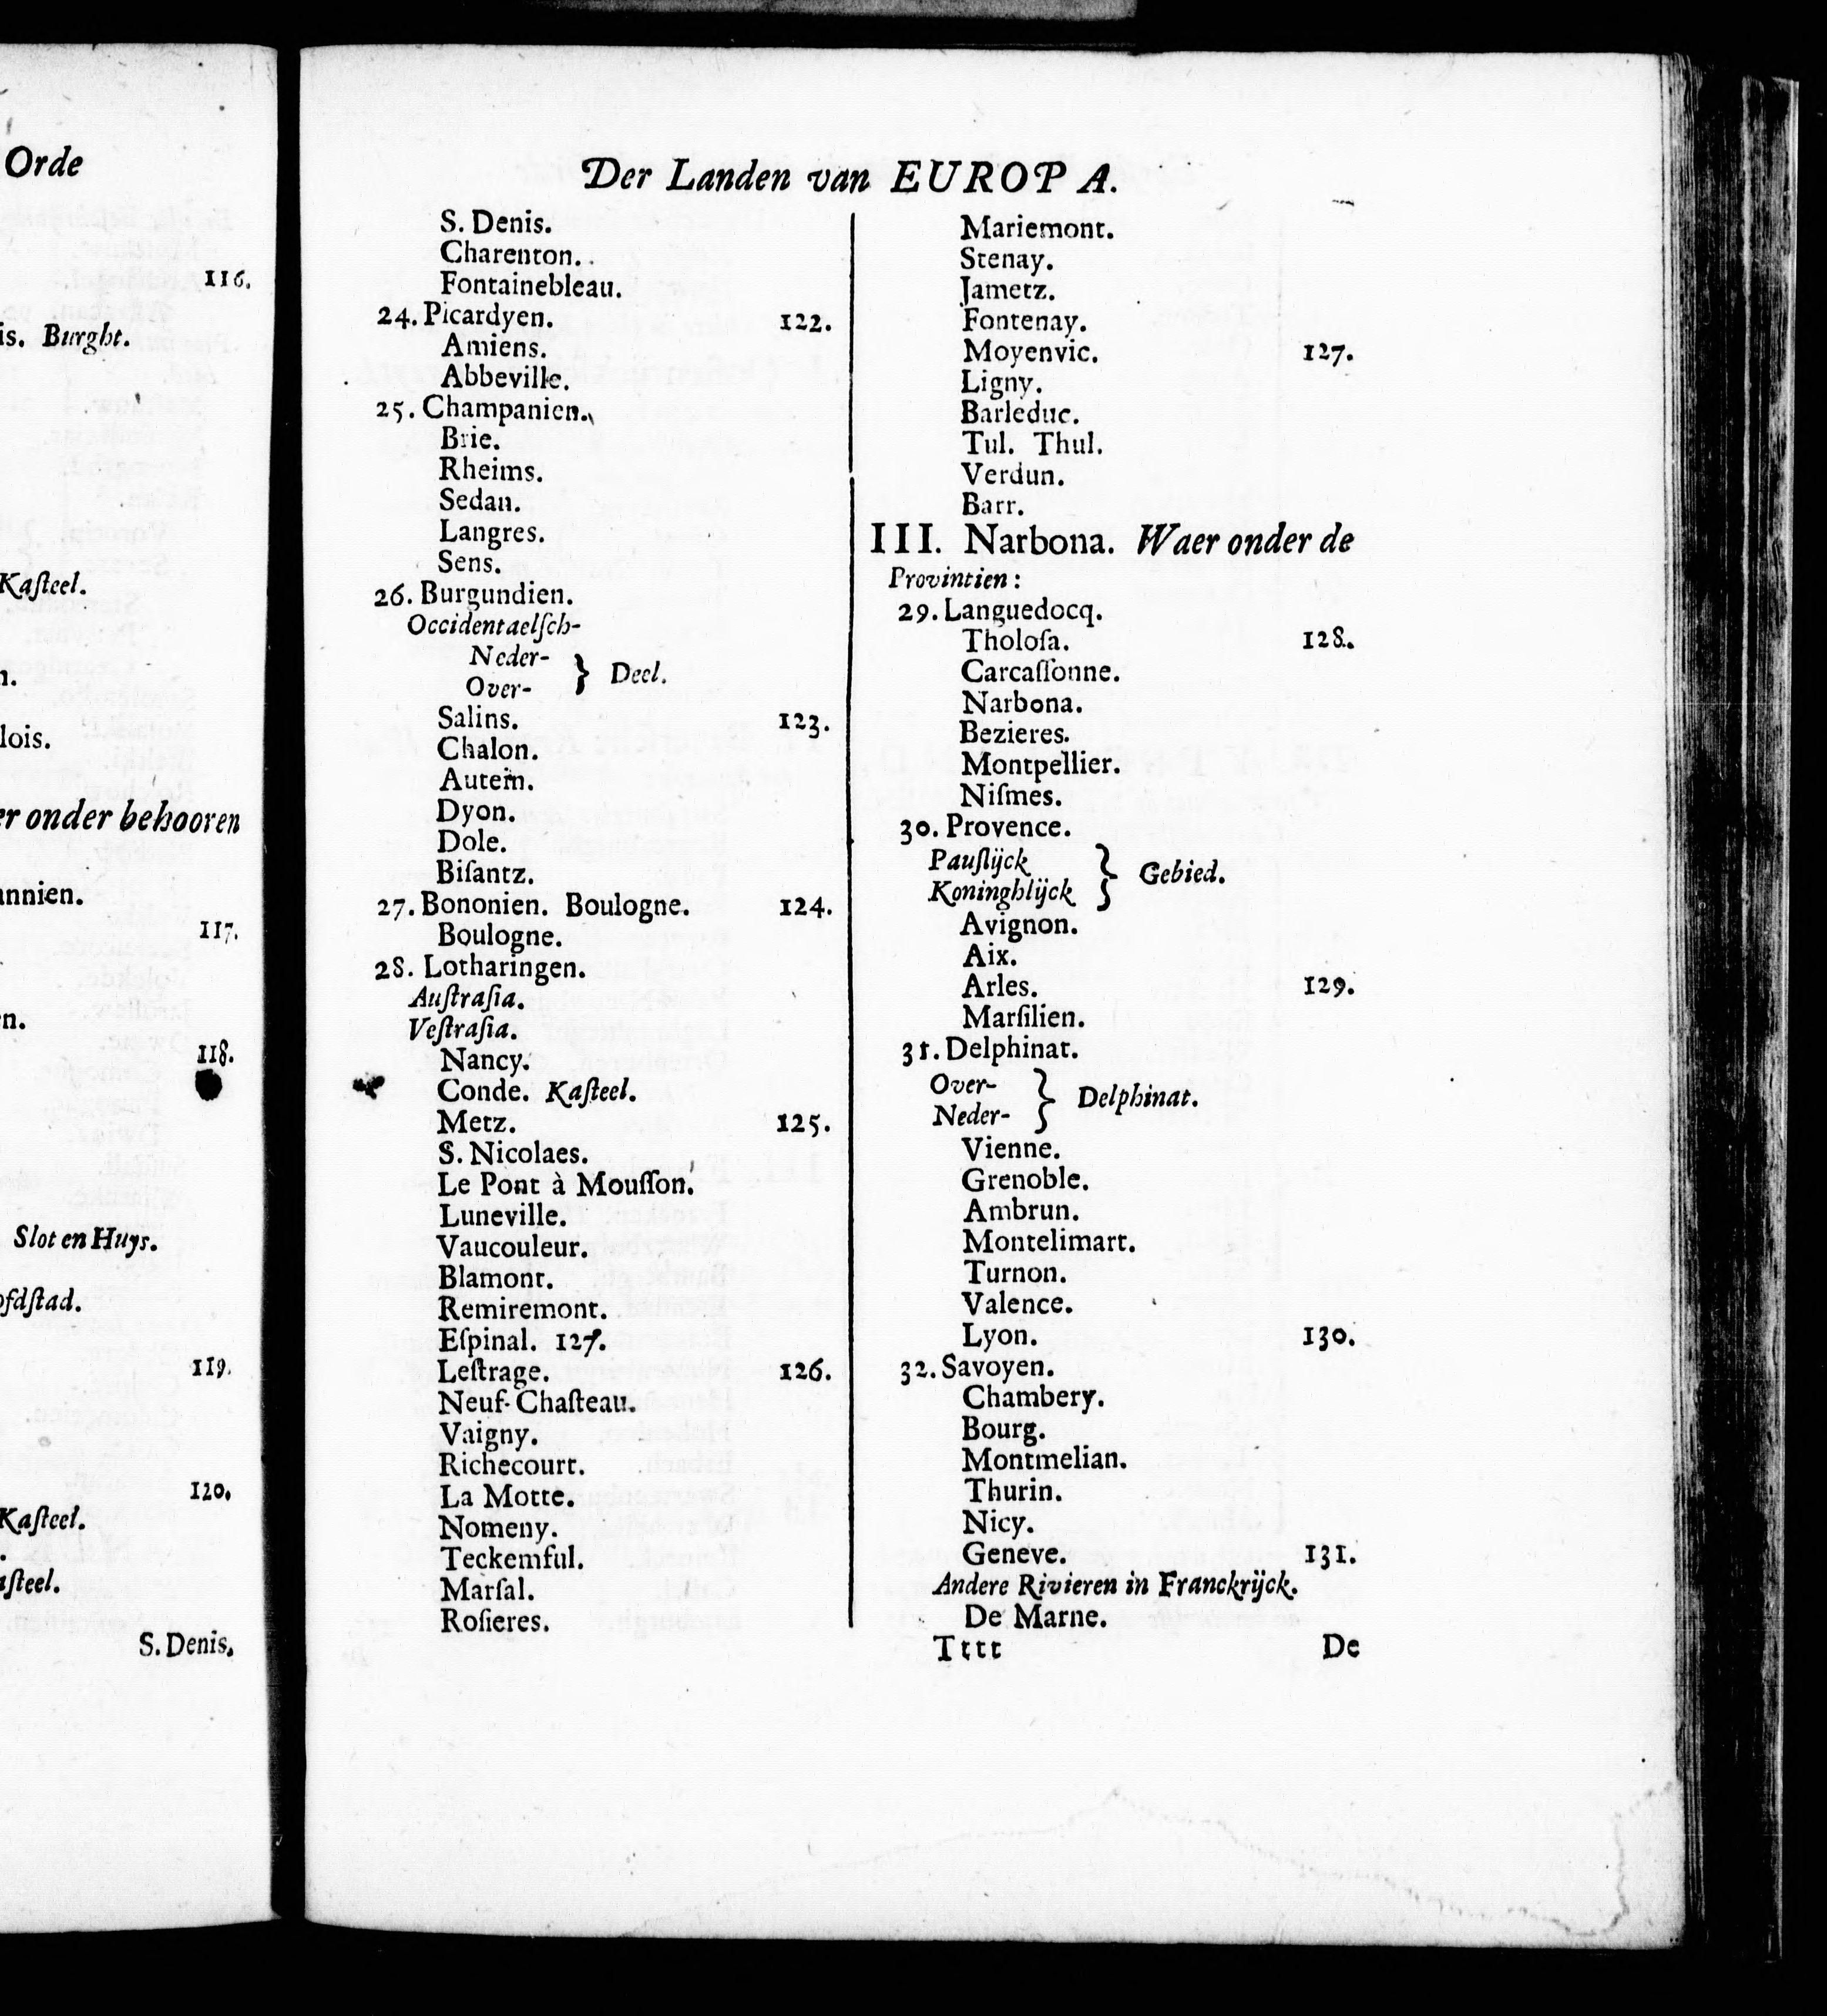 Orde
116.
is. Burght.
Kaſteel.
n.
lois.
er onder behooren
annien.
117.
n.
118.
Slot en Huys.
ofdſtad.
119.
120.
Kaſteel.
aſteel.
S. Denis,
Der Landen van EUROPA.
S. Denis.
Charenton.
Fontainebleau.
24. Picardyen. 122.
Amiens.
Abbeville.
25. Champanien.
Brie.
Rheims.
Sedan.
Langres.
Sens.
26. Burgundien.
Occidentaelſch-
Neder-
Over- } Deel.
Salins. 123.
Chalon.
Autem.
Dyon.
Dole.
Biſantz.
27. Bononien. Boulogne. 124.
Boulogne.
28. Lotharingen.
Auſtraſia.
Veſtraſia.
Nancy.
Conde. Kaſteel.
Metz. 125.
S. Nicolaes.
Le Pont à Mouſſon.
Luneville.
Vaucouleur.
Blamont.
Remiremont.
Eſpinal. 127.
Leſtrage. 126.
Neuf-Chaſteau.
Vaigny.
Richecourt.
La Motte.
Nomeny.
Teckemful.
Marſal.
Roſieres.
Mariemont.
Stenay.
Jametz.
Fontenay.
Moyenvic. 127.
Ligny.
Barleduc.
Tul. Thul.
Verdun.
Barr.
III. Narbona. Waer onder de
Provintien:
29. Languedocq.
Tholoſa. 128.
Carcaſſonne.
Narbona.
Bezieres.
Montpellier.
Niſmes.
30. Provence.
Pauſlijck
Koninghlijck } Gebied.
Avignon.
Aix.
Arles. 129.
Marſilien.
31. Delphinat.
Over-
Neder- } Delphinat.
Vienne.
Grenoble.
Ambrun.
Montelimart.
Turnon.
Valence.
Lyon. 130.
32. Savoyen.
Chambery.
Bourg.
Montmelian.
Thurin.
Nicy.
Geneve. 131.
Andere Rivieren in Franckrijck.
De Marne.
Tttt De